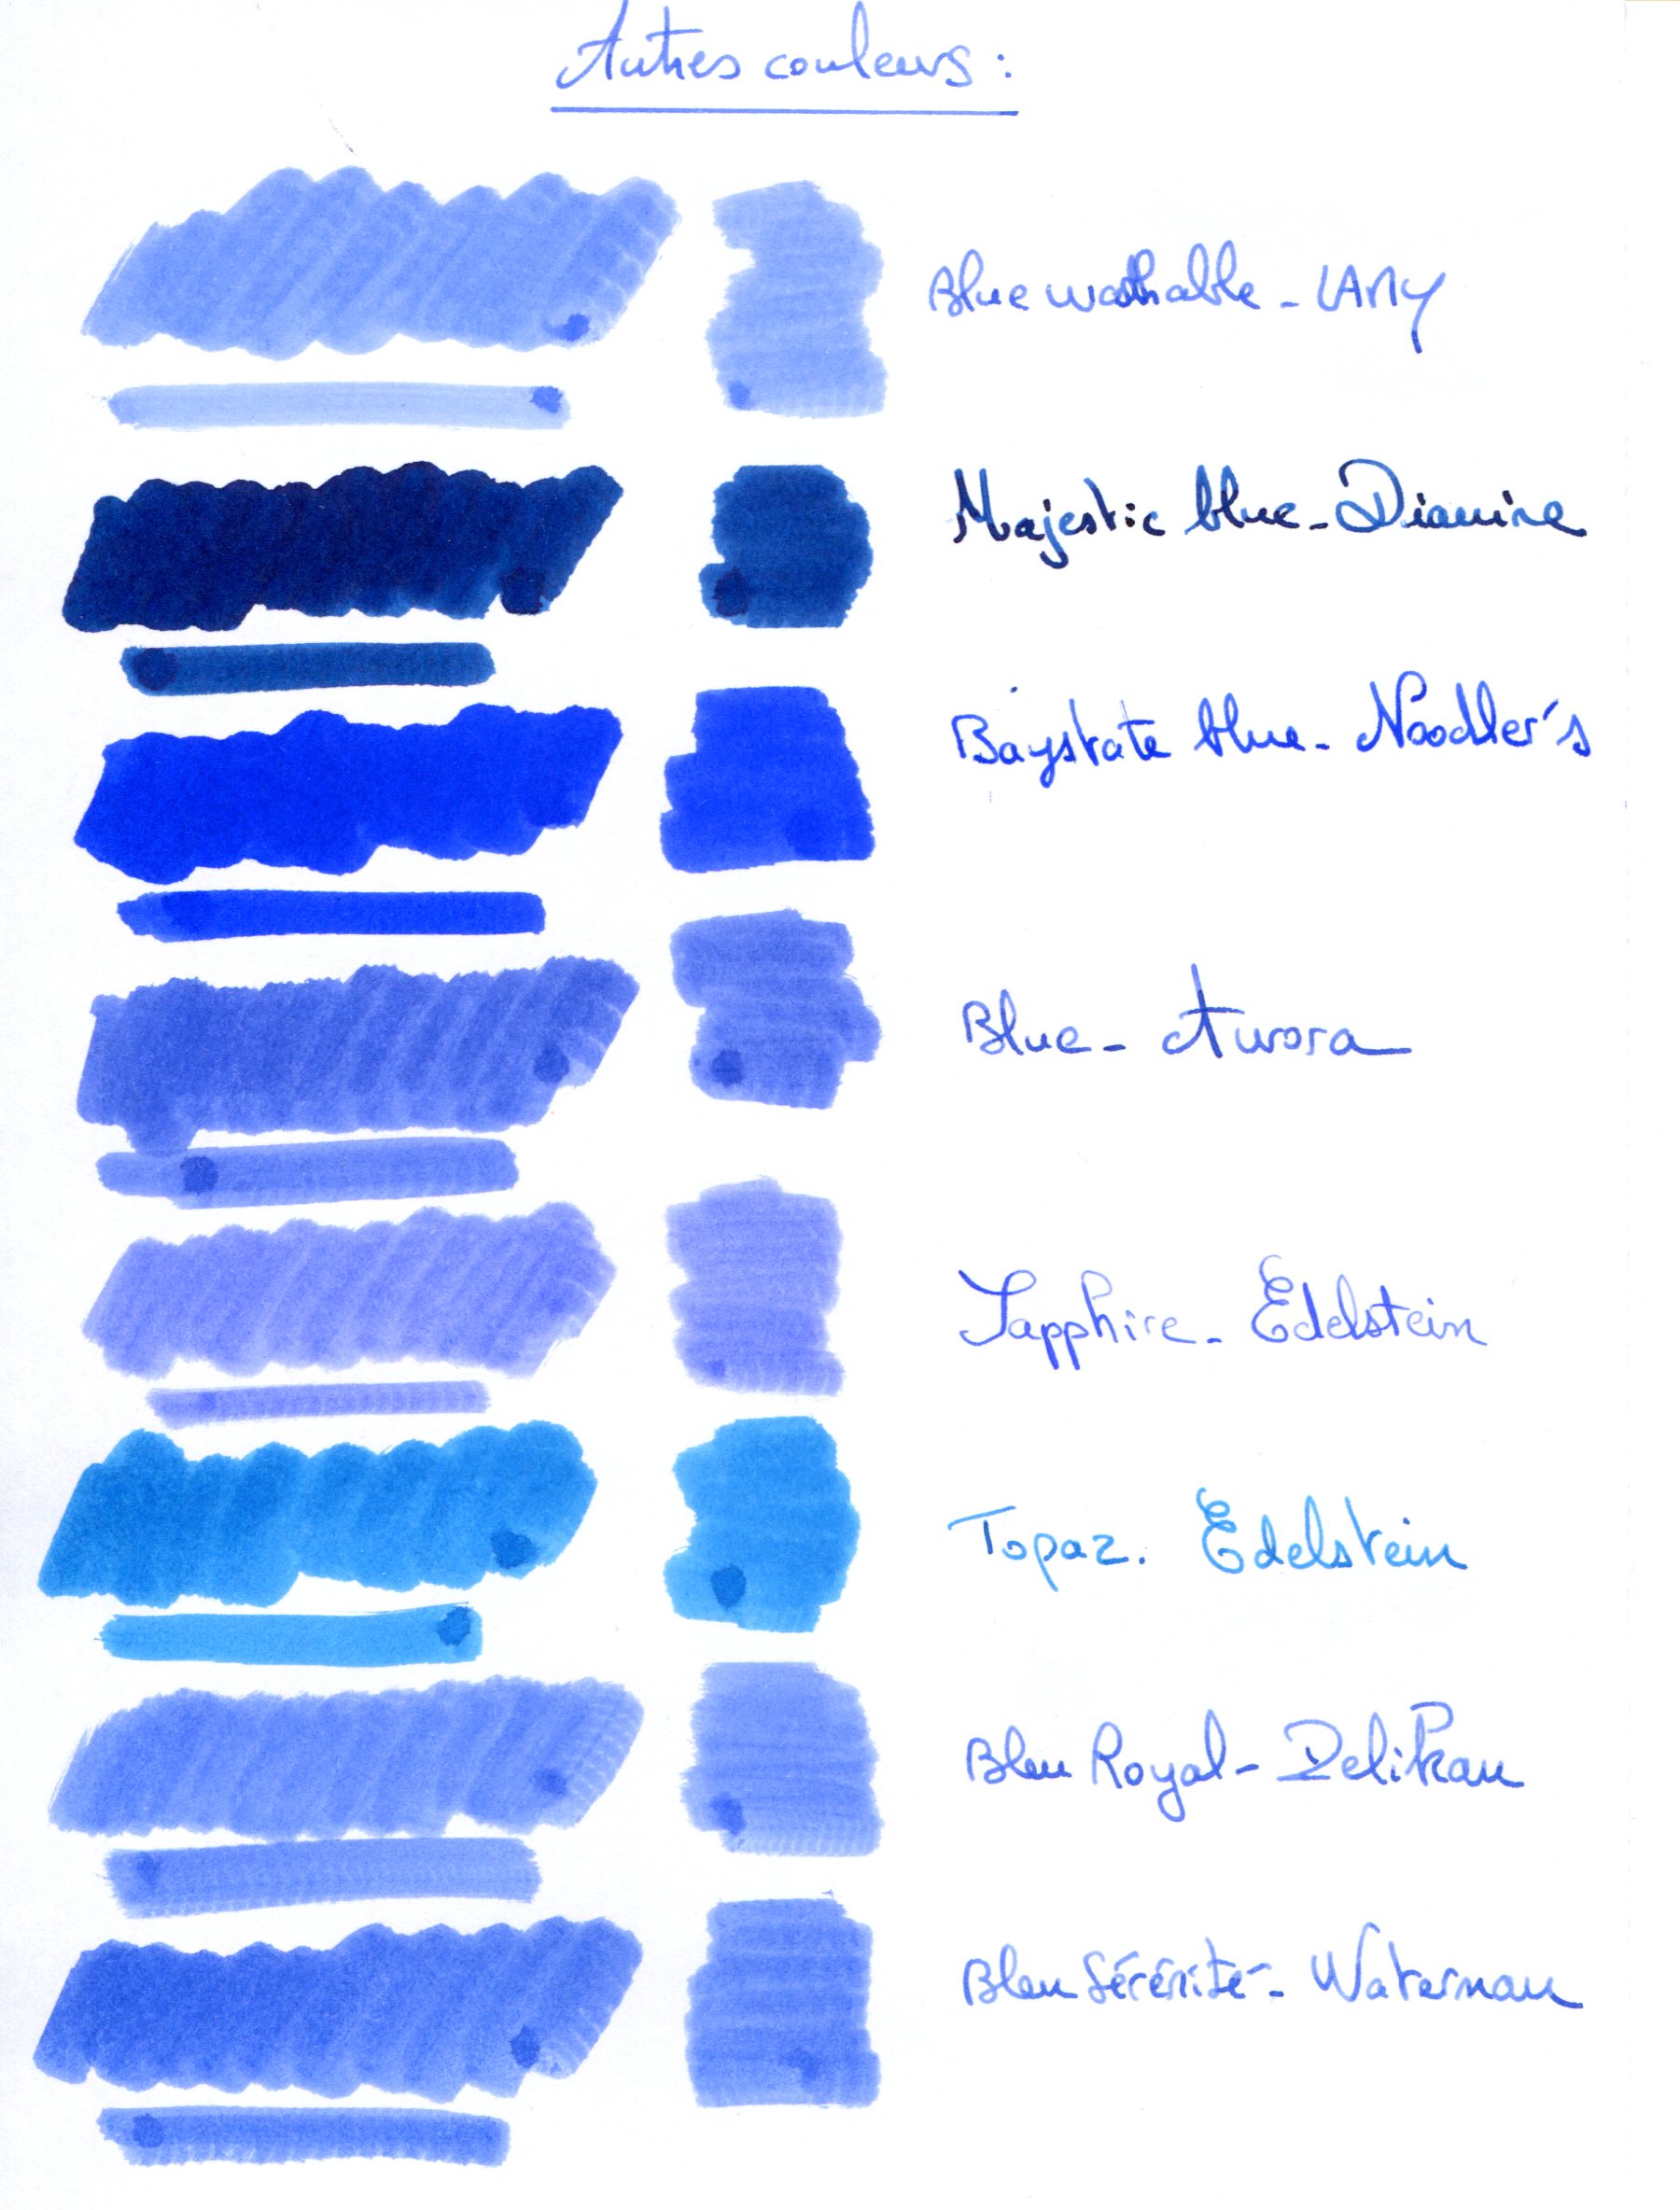 Autres couleurs :
Blue washable - LAMY
Majestic blue - Diamine
Baystate blue - Noodler's
Blue - Aurora
Sapphire - Edelstein
Topaz. Edelstein
Bleu Royal - Pelikan
Bleu Sérénité - Waterman